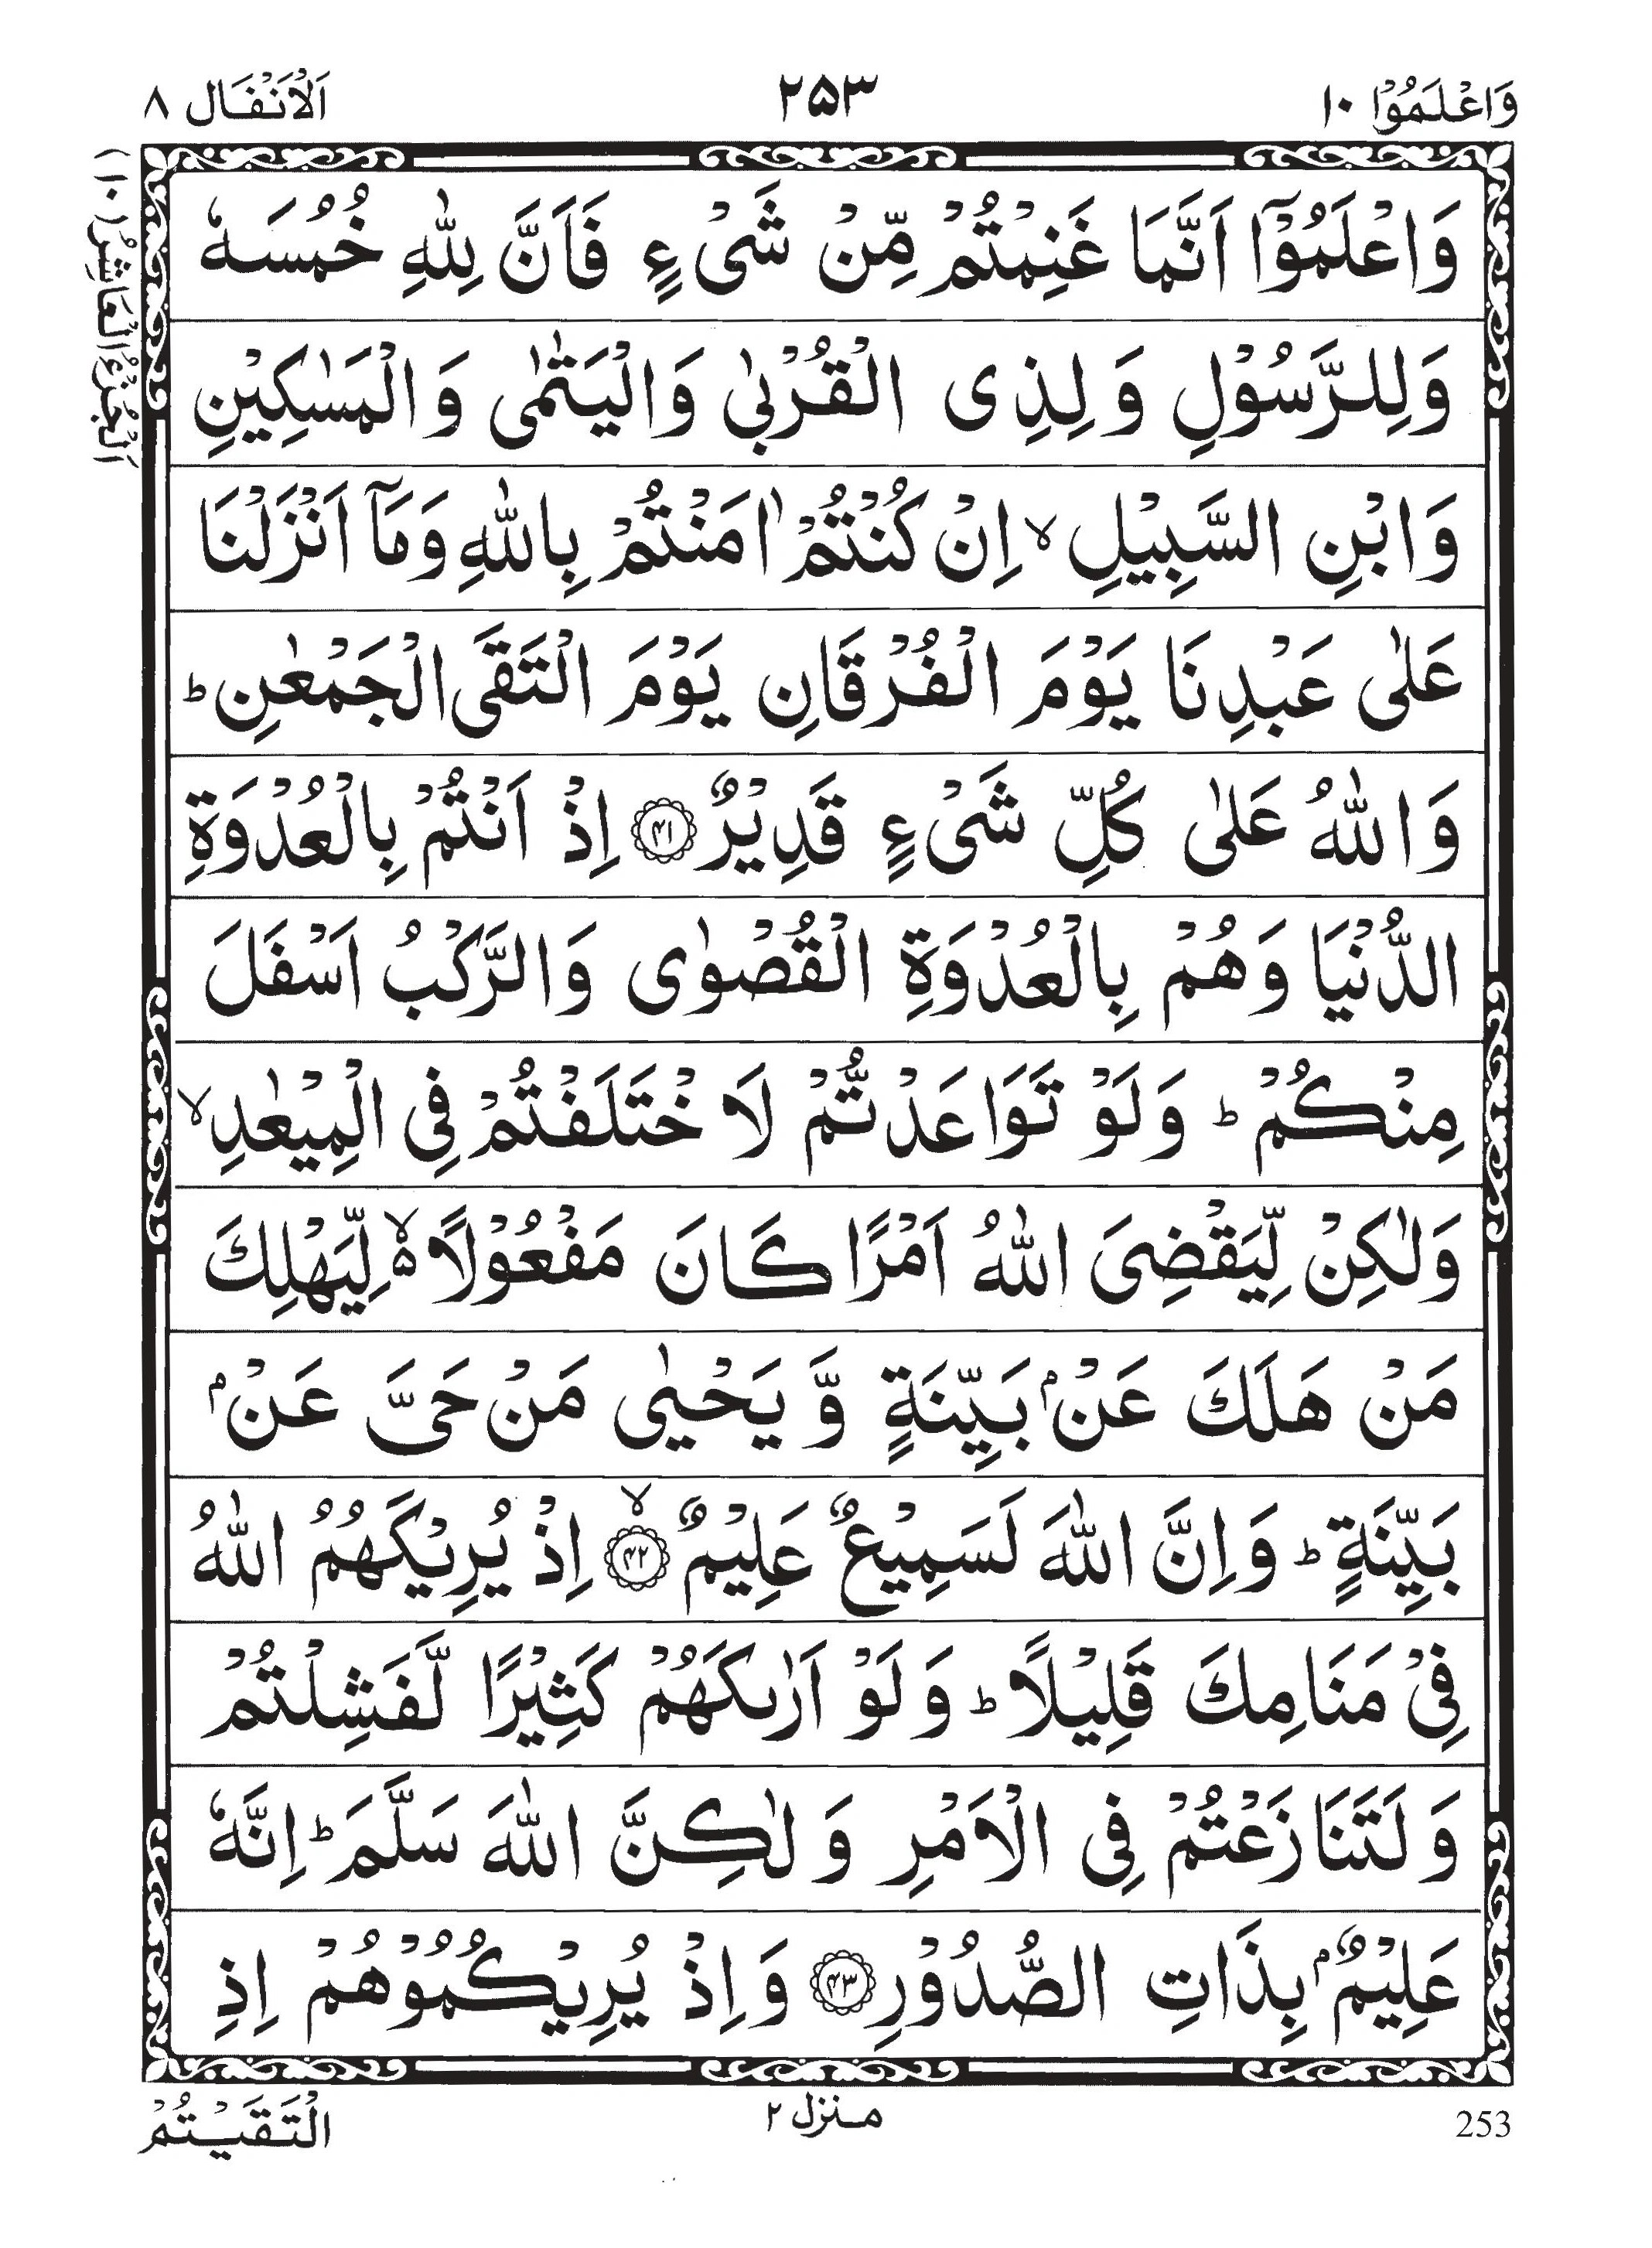 وَاعْلَمُوْٓا ١٠
٢٥٣
اَلْاَنْفَال ٨
اَلْجُزْءُ الْعَاشِرُ (١٠)
وَاعْلَمُوْٓا اَنَّمَا غَنِمْتُمْ مِّنْ شَیْءٍ فَاَنَّ لِلّٰهِ خُمُسَهٗ
وَلِلرَّسُوْلِ وَلِذِی الْقُرْبٰی وَالْیَتٰمٰی وَالْمَسٰكِیْنِ
وَابْنِ السَّبِیْلِ ۙ اِنْ كُنْتُمْ اٰمَنْتُمْ بِاللّٰهِ وَمَآ اَنْزَلْنَا
عَلٰی عَبْدِنَا یَوْمَ الْفُرْقَانِ یَوْمَ الْتَقَی الْجَمْعٰنِ ؕ
وَاللّٰهُ عَلٰی كُلِّ شَیْءٍ قَدِیْرٌ ﴿۴۱﴾ اِذْ اَنْتُمْ بِالْعُدْوَةِ
الدُّنْیَا وَهُمْ بِالْعُدْوَةِ الْقُصْوٰی وَالرَّكْبُ اَسْفَلَ
مِنْكُمْ ؕ وَلَوْ تَوَاعَدْتُّمْ لَاخْتَلَفْتُمْ فِی الْمِیْعٰدِ ۙ
وَلٰكِنْ لِّیَقْضِیَ اللّٰهُ اَمْرًا كَانَ مَفْعُوْلًا ۙ۬ لِّیَهْلِكَ
مَنْ هَلَكَ عَنْۢ بَیِّنَةٍ وَّیَحْیٰی مَنْ حَیَّ عَنْۢ
بَیِّنَةٍ ؕ وَاِنَّ اللّٰهَ لَسَمِیْعٌ عَلِیْمٌ ﴿ۙ۴۲﴾ اِذْ یُرِیْكَهُمُ اللّٰهُ
فِیْ مَنَامِكَ قَلِیْلًا ؕ وَلَوْ اَرٰىكَهُمْ كَثِیْرًا لَّفَشِلْتُمْ
وَلَتَنَازَعْتُمْ فِی الْاَمْرِ وَلٰكِنَّ اللّٰهَ سَلَّمَ ؕ اِنَّهٗ
عَلِیْمٌۢ بِذَاتِ الصُّدُوْرِ ﴿۴۳﴾ وَاِذْ یُرِیْكُمُوْهُمْ اِذِ
الْتَقَیْتُمْ
منزل ٢
253